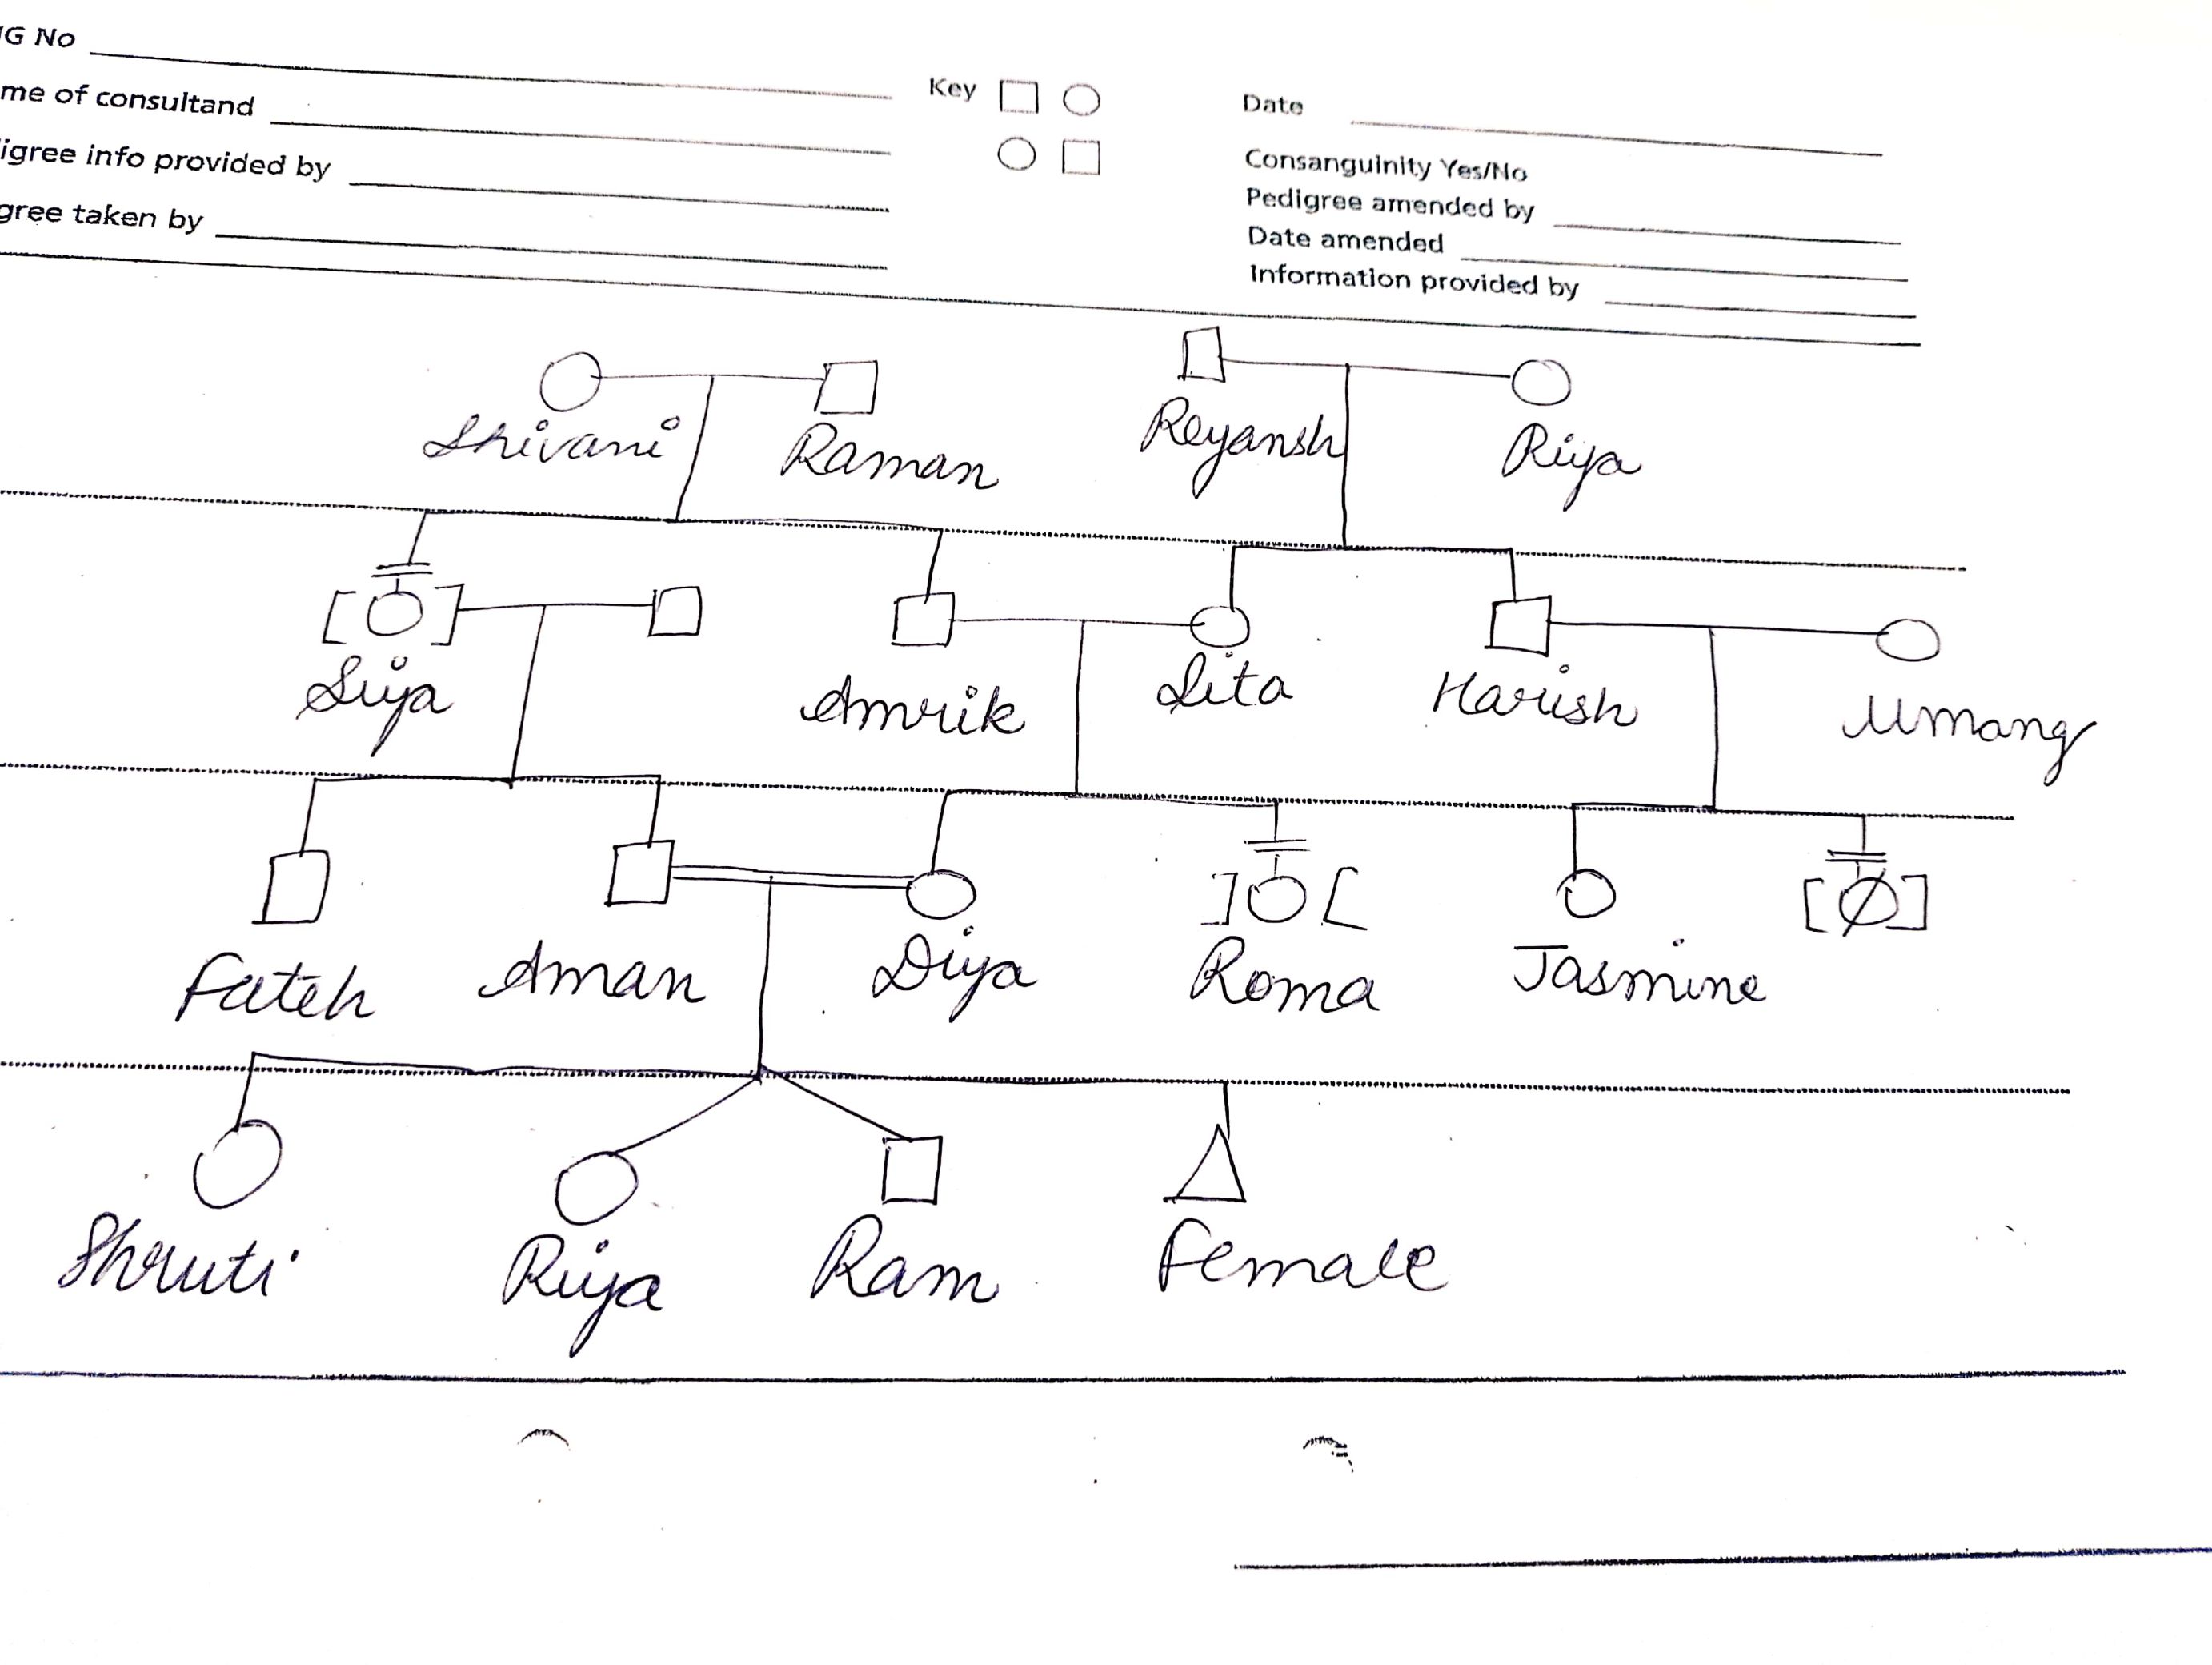 G No
me of consultand
igree info provided by
gree taken by
Key
Date
Consanguinity Yes/No
Pedigree amended by
Date amended
Information provided by
Shivani Raman Reyansh Riya
Siya Amrik Sita Harish Umang
Fateh Aman Diya Roma Jasmine
Shruti Riya Ram Female